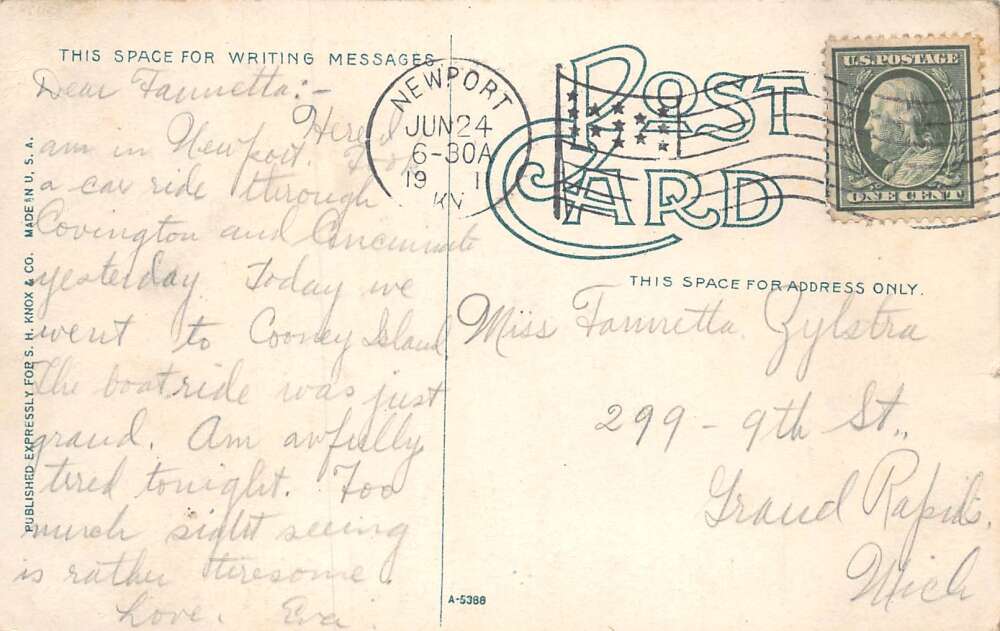 THIS SPACE FOR WRITING MESSAGES
Dear Fannetta:-
Here I
am in Newport. Took
a car ride through
Covington and Cincinnati
yesterday Today we
went to Cooney Island
The boat ride was just
grand. Am awfully
tired tonight. Too
much sight seeing
is rather tiresome.
Love. Eva.
PUBLISHED EXPRESSLY FOR S. H. KNOX & CO. MADE IN U. S. A.
NEWPORT
JUN 24
6-30A
19 1
KY
POST
CARD
U.S. POSTAGE
ONE CENT
THIS SPACE FOR ADDRESS ONLY.
Miss Fannetta Zylstra
299 - 9th St.,
Grand Rapids,
Mich
A-5388